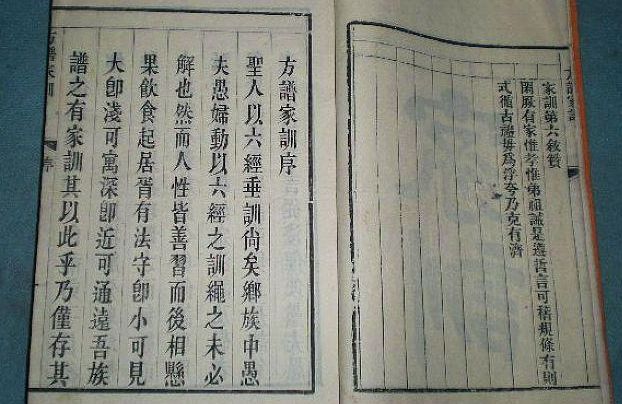 方譜家訓
家訓第六敘贊
閑厥有家惟孝惟弟祖誡是遵哲言可稽規條有則
式循古謨毋爲浮夸乃克有濟
方譜家訓序
聖人以六經垂訓尚矣鄉族中愚
夫愚婦動以六經之訓繩之未必
解也然而人性皆善習而後相懸
果飲食起居胥有法守卽小可見
大卽淺可寓深卽近可通遠吾族
譜之有家訓其以此乎乃僅存其
方譜家訓
序